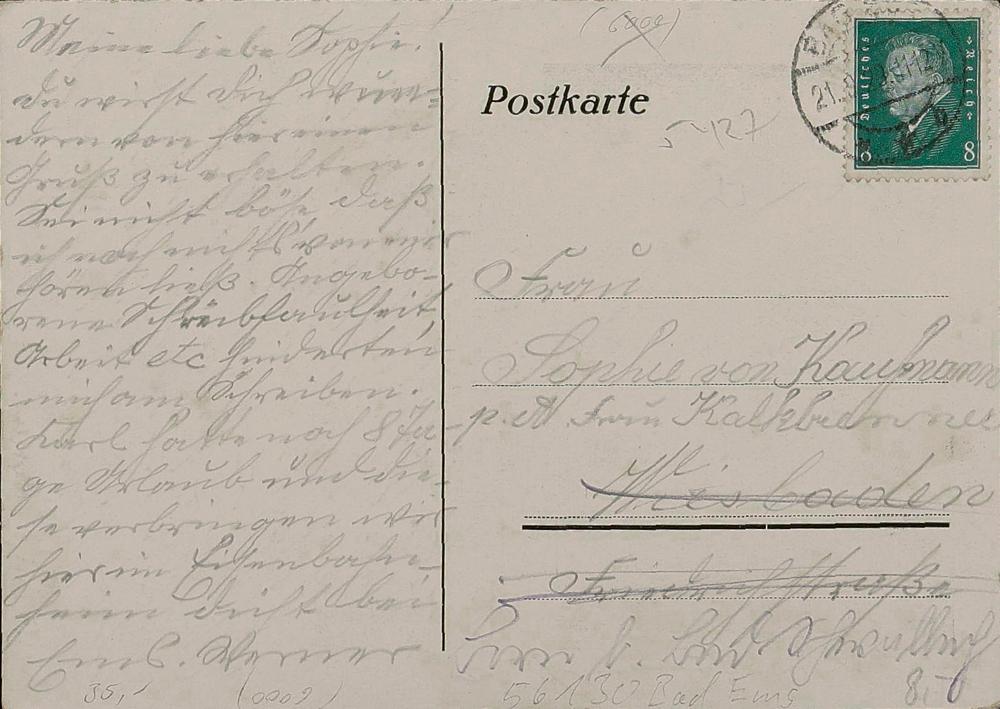 Meine liebe Sophie!
du wirst dich wun-
dern von hier einen
Gruß zu erhalten.
Sei nicht böse, daß
ich noch nichts von mir
hören ließ. Angebo-
rene Schreibfaulheit,
Arbeit etc hinderten
mich am Schreiben.
Karl hatte noch 8 Ta-
ge Urlaub und die-
se verbringen wir
hier im Eisenbahn-
heim dicht bei
Ems. Werner
35,-
(0009)
(6009)
Postkarte
127
Deutsches Reich
8 8
21.
Frau
Sophie von Kaufmann
p. A. Frau Kalkbrenner
Wiesbaden
Friedrichstraße
b. Bad Schwalbach
56130 Bad Ems
8,-